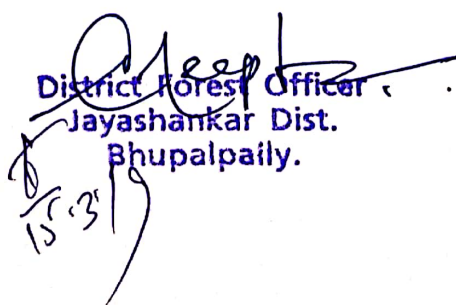 District Forest Officer.
Jayashankar Dist.
Bhupalpally.
15.3.19